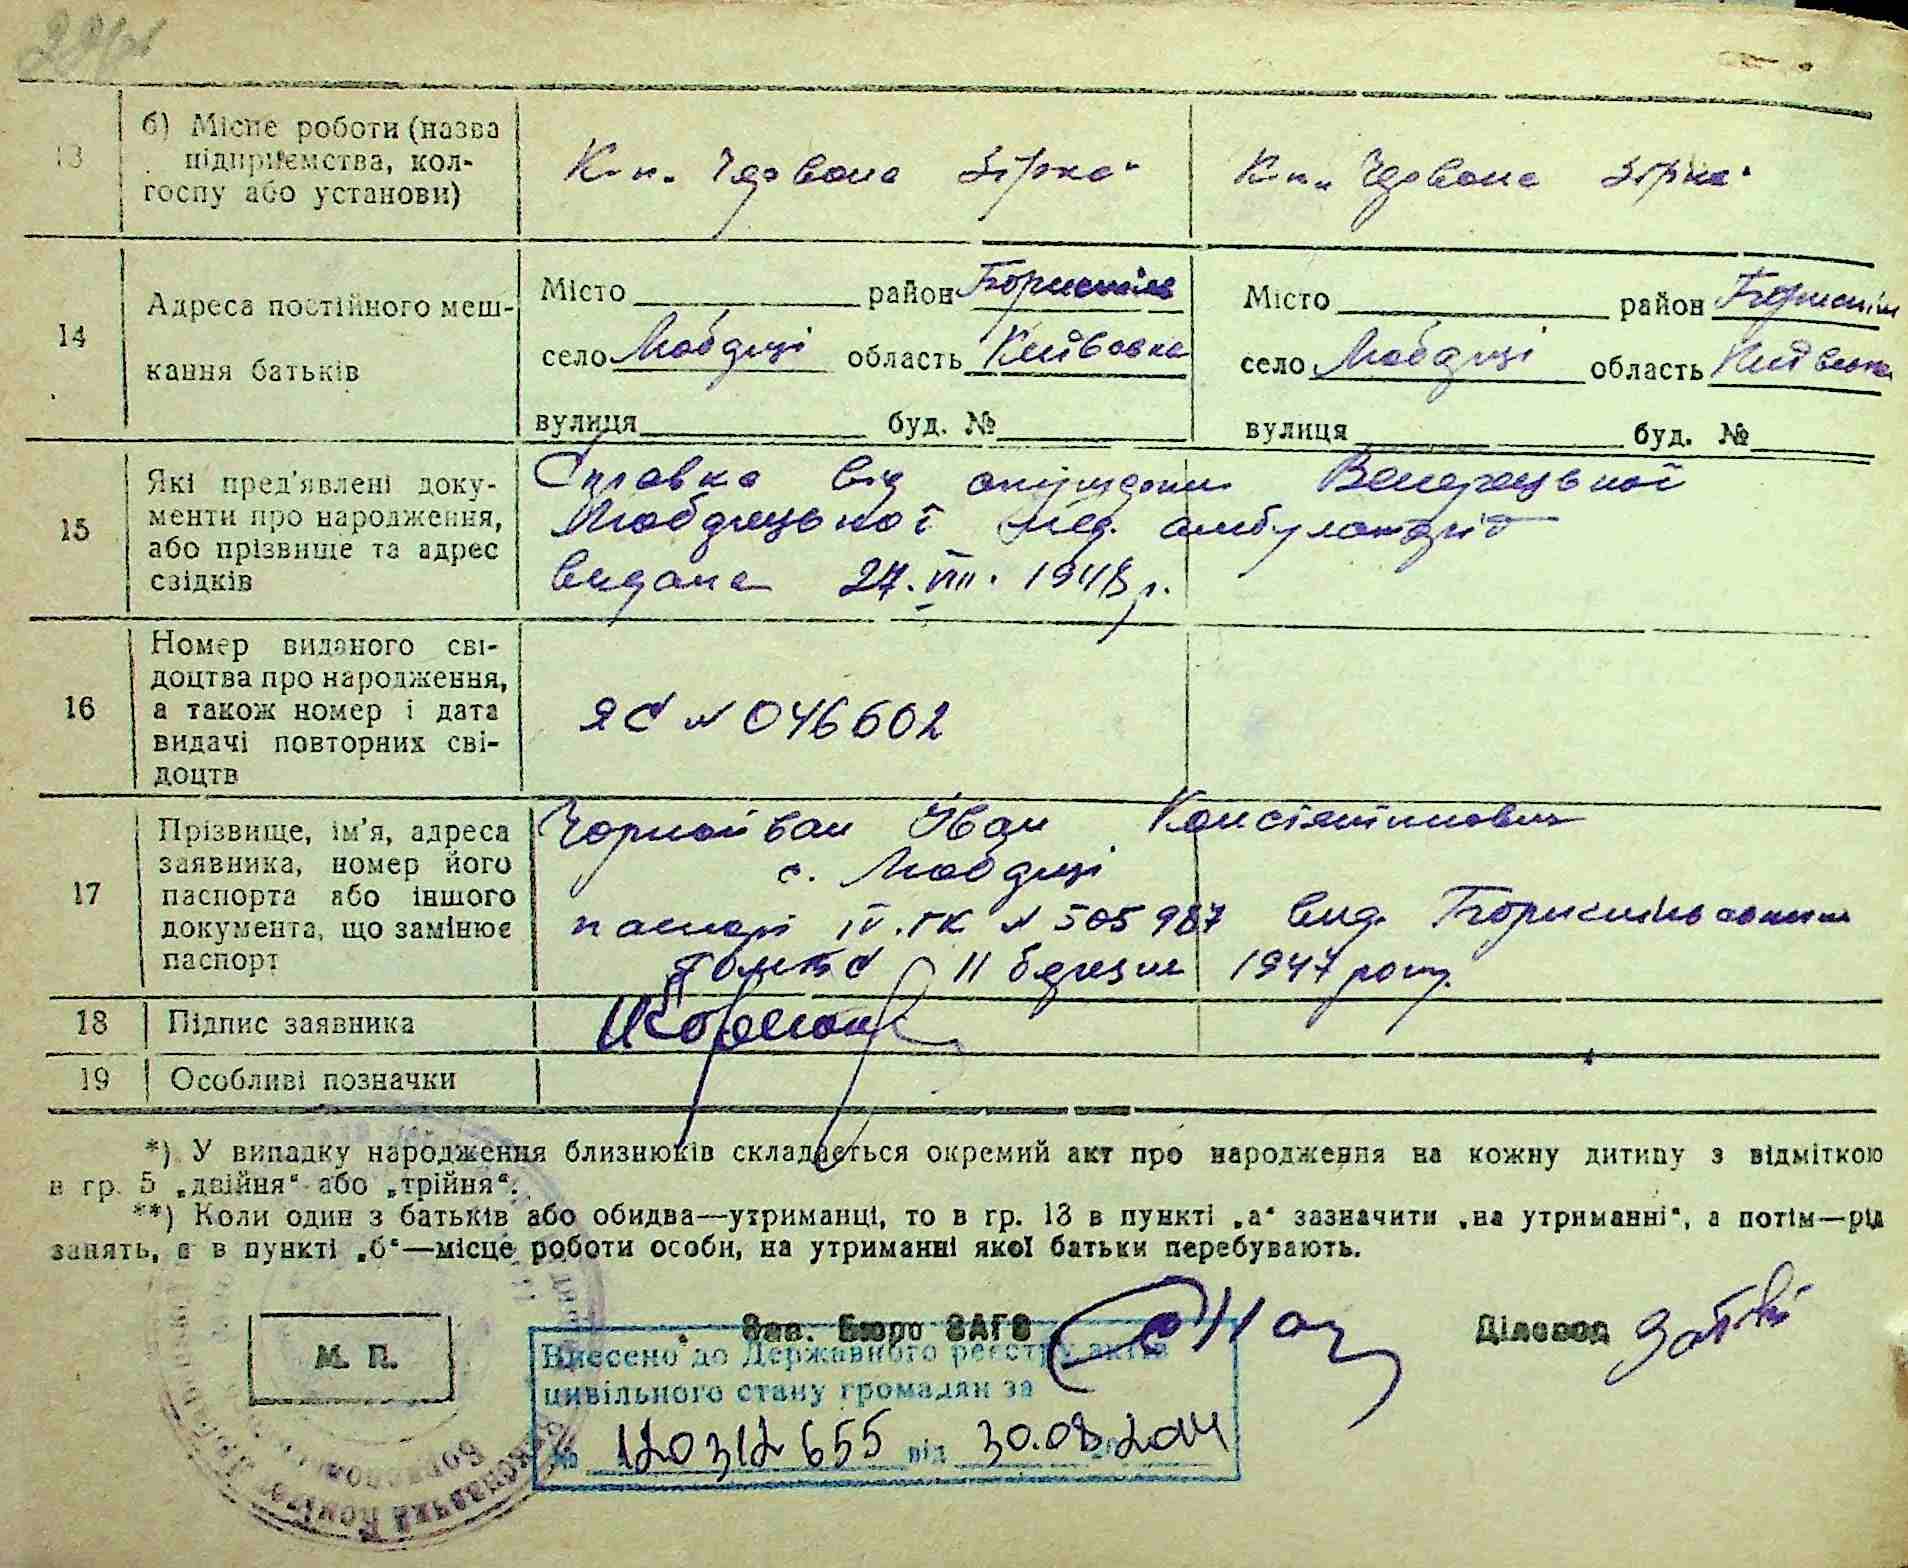 13 б) Місце роботи (назва підприємства, колгоспу або установи)
К-п „Червона зірка“ К-п „Червона зірка“
14 Адреса постійного мешкання батьків
Місто район Бориспіль Місто район Бориспіль
село Любарці область Київська село Любарці область Київська
вулиця буд. № вулиця буд. №
15 Які пред'явлені документи про народження, або прізвище та адрес свідків
Справка від акушерки
Любарецької мед. амбулаторії
видана 27.VIII.1948 р.
16 Номер виданого свідоцтва про народження, а також номер і дата видачі повторних свідоцтв
ЯС № 046602
17 Прізвище, ім'я, адреса заявника, номер його паспорта або іншого документа, що замінює паспорт
Чорнойван Іван Констянтинович
с. Любарці
паспорт IV.ГК № 505987 вид. Бориспільським
11 березня 1947 року.
18 Підпис заявника
19 Особливі позначки
*) У випадку народження близнюків складається окремий акт про народження на кожну дитину з відміткою
в гр. 5 „двійня“ або „трійня“.
**) Коли один з батьків або обидва—утриманці, то в гр. 13 в пункті „а“ зазначити „на утриманні“, а потім—рід
занять, а в пункті „б“—місце роботи особи, на утриманні якої батьки перебувають.
М. П.
Зав. Бюро ЗАГС Діловод
Внесено до Державного реєстру актів
цивільного стану громадян за
№ 120312655 від 30.08.2014